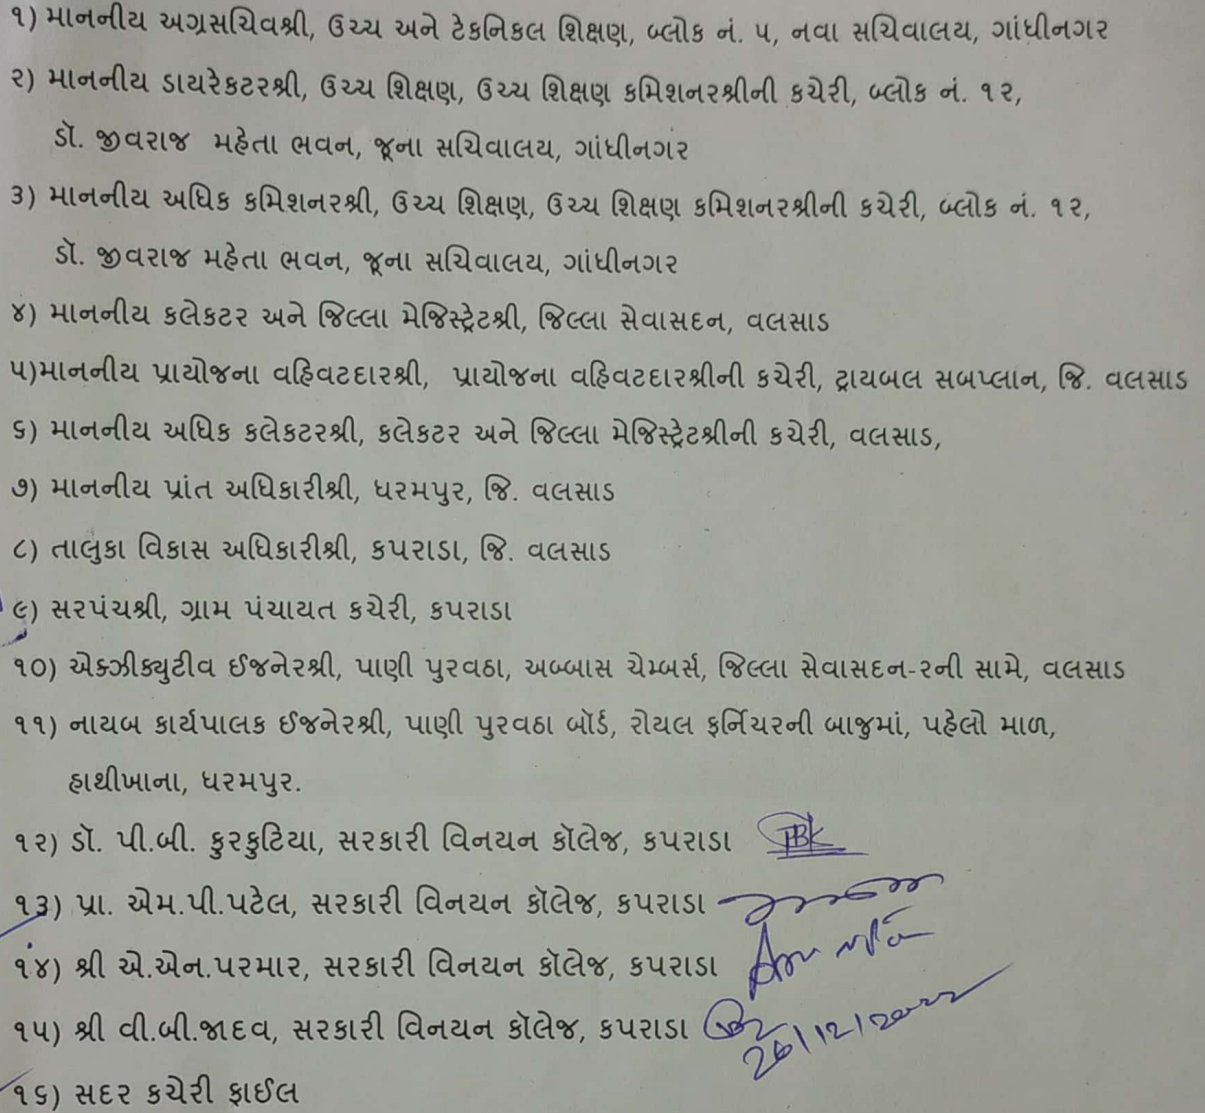 ૧) માનનીય અગ્રસચિવશ્રી, ઉચ્ચ અને ટેકનિકલ શિક્ષણ, બ્લોક નં. ૫, નવા સચિવાલય, ગાંધીનગર
૨) માનનીય ડાયરેકટરશ્રી, ઉચ્ચ શિક્ષણ, ઉચ્ચ શિક્ષણ કમિશનરશ્રીની કચેરી, બ્લોક નં. ૧૨,
ડૉ. જીવરાજ મહેતા ભવન, જૂના સચિવાલય, ગાંધીનગર
૩) માનનીય અધિક કમિશનરશ્રી, ઉચ્ચ શિક્ષણ, ઉચ્ચ શિક્ષણ કમિશનરશ્રીની કચેરી, બ્લોક નં. ૧૨,
ડૉ. જીવરાજ મહેતા ભવન, જૂના સચિવાલય, ગાંધીનગર
૪) માનનીય કલેકટર અને જિલ્લા મેજિસ્ટ્રેટશ્રી, જિલ્લા સેવાસદન, વલસાડ
૫)માનનીય પ્રાયોજના વહિવટદારશ્રી, પ્રાયોજના વહિવટદારશ્રીની કચેરી, ટ્રાયબલ સબપ્લાન, જિ. વલસાડ
૬) માનનીય અધિક કલેકટરશ્રી, કલેકટર અને જિલ્લા મેજિસ્ટ્રેટશ્રીની કચેરી, વલસાડ,
૭) માનનીય પ્રાંત અધિકારીશ્રી, ધરમપુર, જિ. વલસાડ
૮) તાલુકા વિકાસ અધિકારીશ્રી, કપરાડા, જિ. વલસાડ
૯) સરપંચશ્રી, ગ્રામ પંચાયત કચેરી, કપરાડા
૧૦) એક્ઝીક્યુટીવ ઈજનેરશ્રી, પાણી પુરવઠા, અબ્બાસ ચેમ્બર્સ, જિલ્લા સેવાસદન-૨ની સામે, વલસાડ
૧૧) નાયબ કાર્યપાલક ઈજનેરશ્રી, પાણી પુરવઠા બૉર્ડ, રોયલ ફર્નિચરની બાજુમાં, પહેલો માળ,
હાથીખાના, ધરમપુર.
૧૨) ડૉ. પી.બી. કુરકુટિયા, સરકારી વિનયન કૉલેજ, કપરાડા PBK
૧૩) પ્રા. એમ.પી.પટેલ, સરકારી વિનયન કૉલેજ, કપરાડા
૧૪) શ્રી એ.એન.પરમાર, સરકારી વિનયન કૉલેજ, કપરાડા
૧૫) શ્રી વી.બી.જાદવ, સરકારી વિનયન કૉલેજ, કપરાડા
26/12/2022
૧૬) સદર કચેરી ફાઈલ